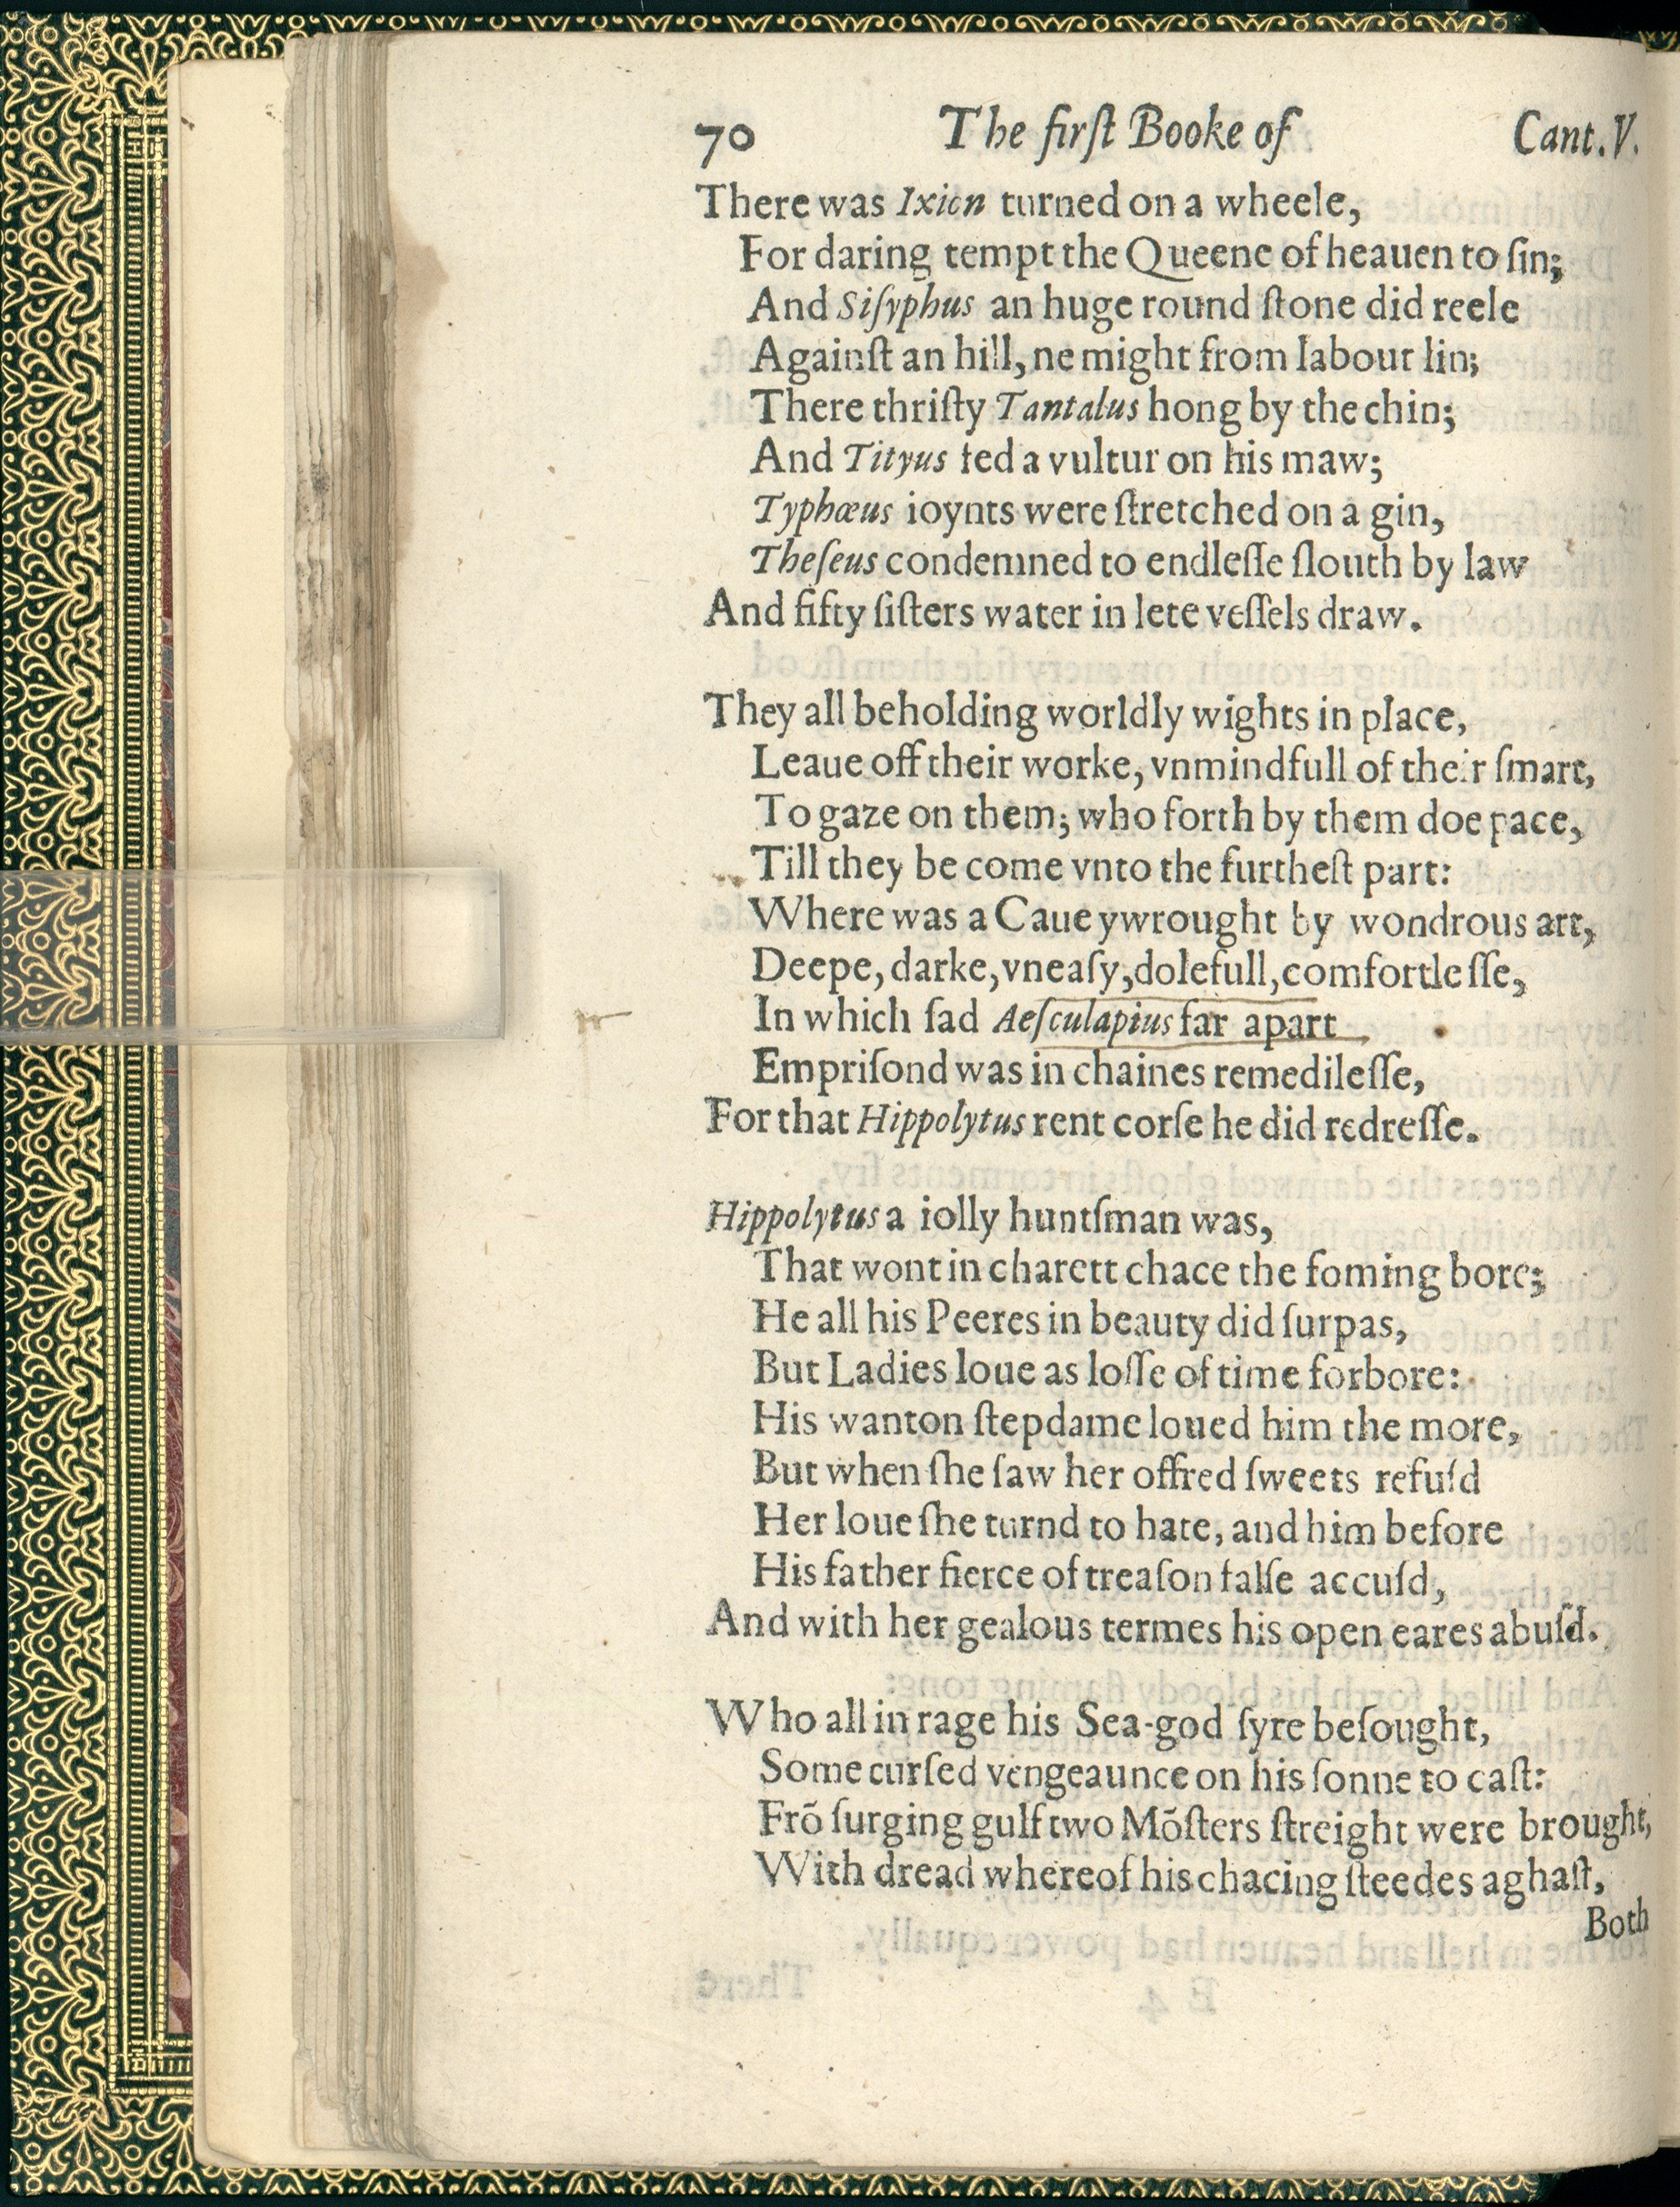 70 The firſt Booke of Cant.V.
There was Ixion turned on a wheele,
For daring tempt the Queene of heauen to ſin;
And Siſyphus an huge round ſtone did reele
Againſt an hill, ne might from labour lin;
There thriſty Tantalus hong by the chin;
And Tityus fed a vultur on his maw;
Typhœus ioynts were ſtretched on a gin,
Theſeus condemned to endleſſe ſlouth by law
And fifty ſiſters water in lete veſſels draw.
They all beholding worldly wights in place,
Leaue off their worke, vnmindfull of their ſmart,
To gaze on them; who forth by them doe pace,
Till they be come vnto the furtheſt part:
Where was a Caue ywrought by wondrous art,
Deepe, darke, vneaſy, dolefull, comfortleſſe,
In which ſad Aeſculapius far apart
Empriſond was in chaines remedileſſe,
For that Hippolytus rent corſe he did redreſſe.
Hippolytus a iolly huntſman was,
That wont in charett chace the foming bore;
He all his Peeres in beauty did ſurpas,
But Ladies loue as loſſe of time forbore:
His wanton ſtepdame loued him the more,
But when ſhe ſaw her offred ſweets refuſd
Her loue ſhe turnd to hate, and him before
His father fierce of treaſon falſe accuſd,
And with her gealous termes his open eares abuſd.
Who all in rage his Sea-god ſyre beſought,
Some curſed vengeaunce on his ſonne to caſt:
Frõ ſurging gulf two Mõſters ſtreight were brought,
With dread whereof his chacing ſteedes aghaſt,
Both